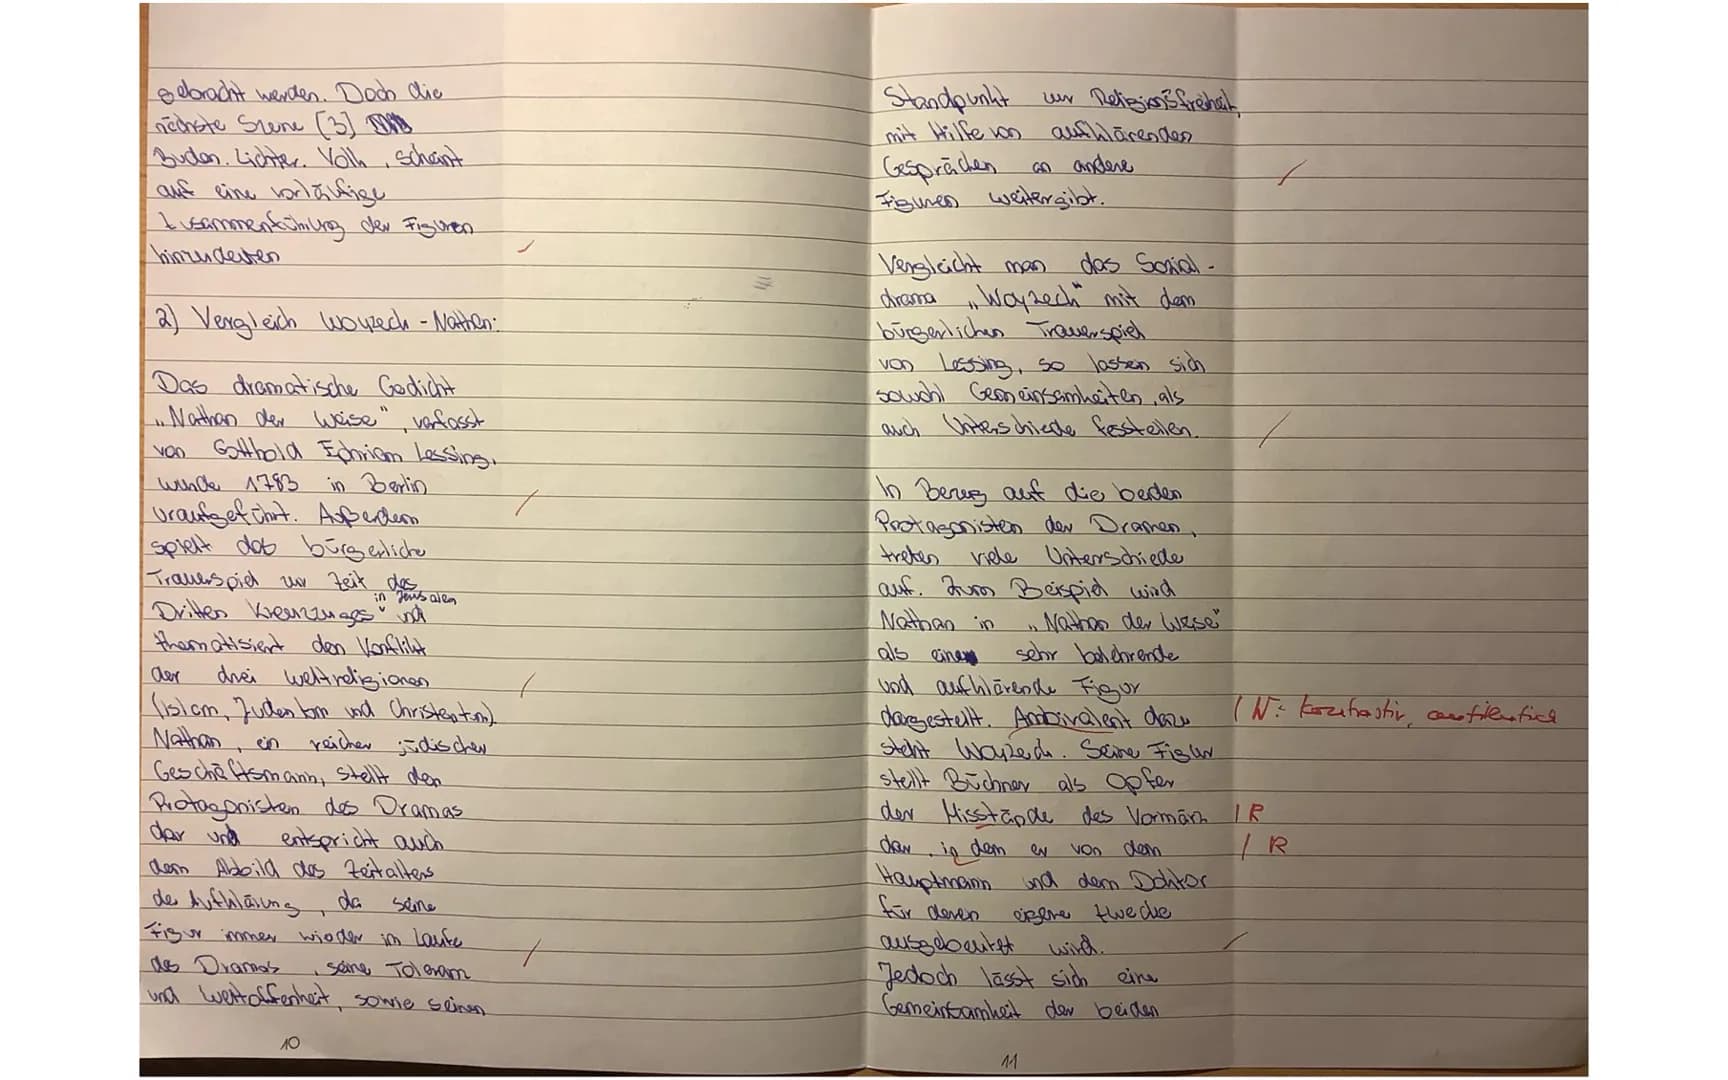 gebracht werden. Doch die
nächste Szene (3)
Buden. Lichter. Volk, scheint
auf eine vorläufige
Zusammenführung der Figuren
hinzudeuten
2) Vergleich Woyzeck - Nathan:
Das dramatische Gedicht
„Nathan der Weise", verfasst
von Gotthold Ephriam Lessing,
wurde 1783 in Berlin
uraufgeführt. Außerdem
spielt das bürgerliche
Trauerspiel zur Zeit des
in Jerusalem
Dritten Kreuzzuges und
thematisiert den Konflikt
der drei Weltreligionen
(Islam, Judentum und Christentum).
Nathan, ein reicher jüdischer
Geschäftsmann, stellt den
Protagonisten des Dramas
dar und entspricht auch
dem Abbild des Zeitalters
der Aufklärung, da seine
Figur immer wieder im Laufe
des Dramas, seine Toleranz
und Weltoffenheit, sowie seinen
10
Standpunkt zur Religionsfreiheit,
mit Hilfe von aufklärenden
Gesprächen an andere
Figuren weitergibt.
Vergleicht man das Sozial-
drama „Woyzeck" mit dem
bürgerlichen Trauerspiel
von Lessing, so lassen sich
sowohl Gemeinsamheiten, als
auch Unterschiede feststellen.
In Bezug auf die beiden
Protagonisten der Dramen,
treten viele Unterschiede
auf. Zum Beispiel wird
Nathan in „Nathan der Weise"
als eine sehr belehrende
und aufklärende Figur
dargestellt. Ambivalent dazu | N: kontrastiv,
steht Woyzeck. Seine Figur
stellt Büchner als Opfer
der Misstände des Vormärz | R
dar, in dem er von dem | R
Hauptmann und dem Doktor
für deren eigene Zwecke
ausgebeutet wird.
Jedoch lässt sich eine
Gemeinsamkeit der beiden
11